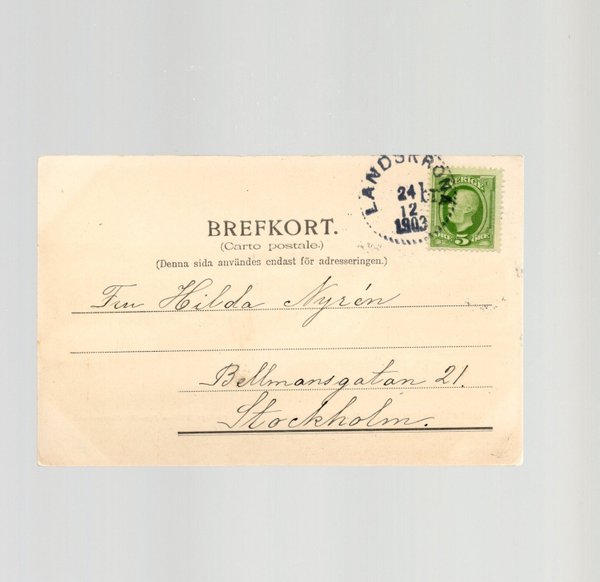 LANDSKRONA
24 12
1903
SVERIGE
ÖRE 5 ÖRE
BREFKORT.
(Carto postale.)
(Denna sida användes endast för adresseringen.)
Fru Hilda Nyrén
Bellmansgatan 21.
Stockholm.